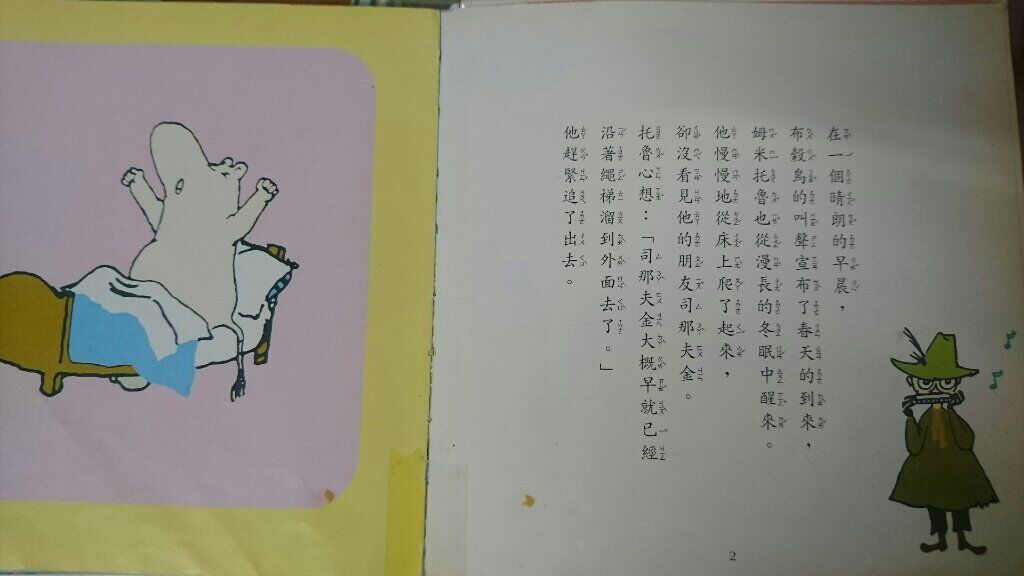 在一個晴朗的早晨，
布穀鳥的叫聲宣布了春天的到來，
姆米托魯也從漫長的冬眠中醒來。
他慢慢地從床上爬了起來，
卻沒看見他的朋友司那夫金。
托魯心想：「司那夫金大概早就已經
沿著繩梯溜到外面去了。」
他趕緊追了出去。
2